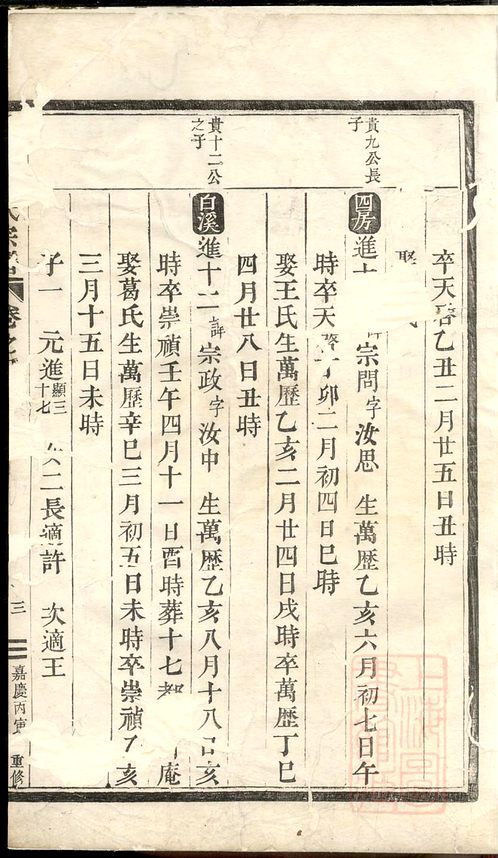 卒天啓乙丑二月廿五日丑時
娶
貴九公長
子
四房 進 宗問字汝思 生萬歷乙亥六月初七日午
時卒天啓丁卯二月初四日巳時
娶王氏生萬歷乙亥二月廿四日戌時卒萬歷丁巳
四月廿八日丑時
貴十二公
之子
白溪 進十二諱宗政字汝中 生萬歷乙亥八月十八日亥
時卒崇禎壬午四月十一日酉時葬十七都 庵
娶葛氏生萬歷辛巳三月初五日未時卒崇禎丁亥
三月十五日未時
子一 元進顯三十七 女二長適許 次適王
氏宗譜 卷之 三 嘉慶丙寅 重修